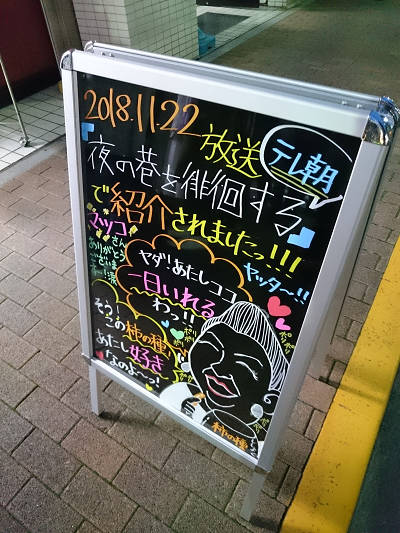 2018.11.22 放送
テレ朝
『夜の巷を徘徊する』
で紹介されましたっ!!!
マツコさん
ありがとう
ございま
ヤッター!!
ヤダ!あたしココ
一日いれる
わっ!!
そうとう
この柿の種!!
あたし好き
なのよ〜っ!
ポリ
ポリ
柿の種